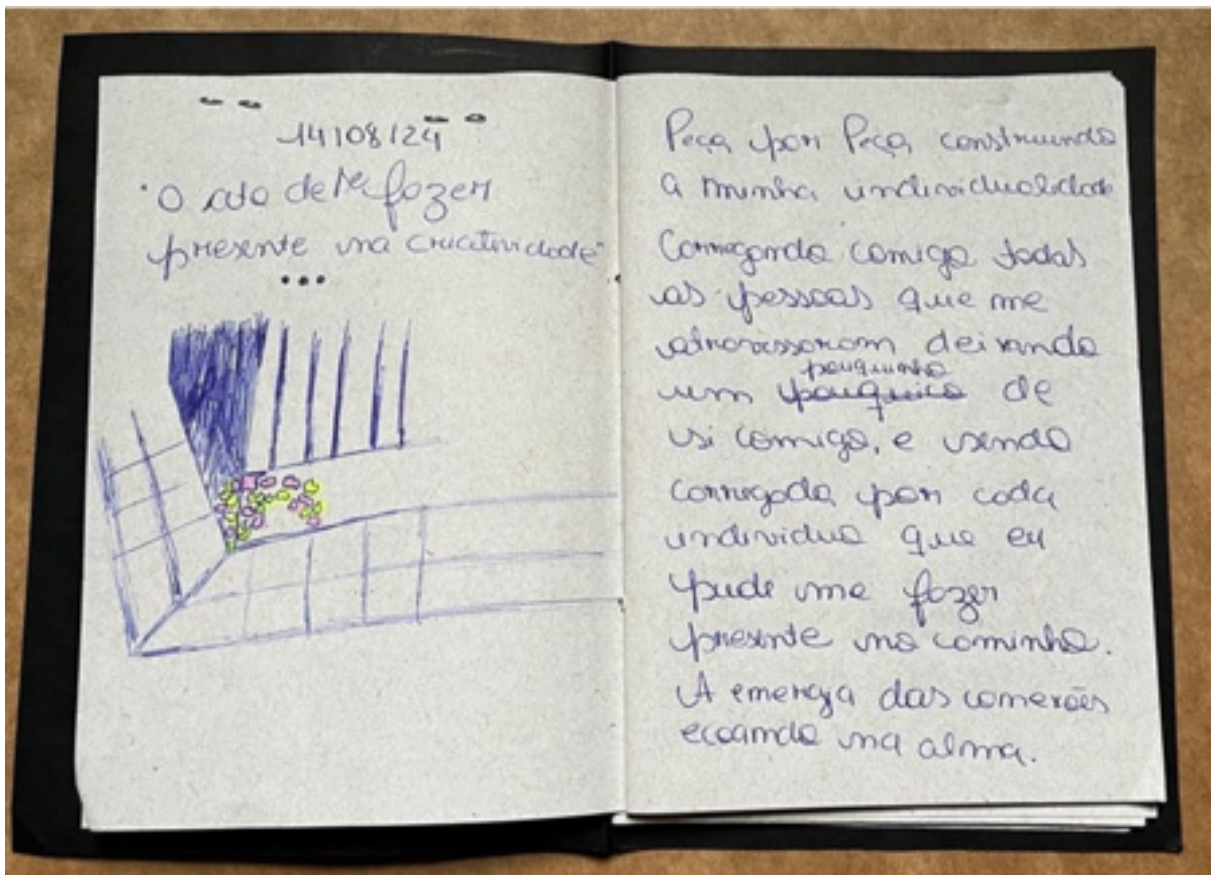 14/08/24
"O ato de me fazer
presente na criatividade"
...
Peça por Peça construindo
a minha individualidade
Carregando comigo todas
as pessoas que me
atravessaram deixando
um pouquinho de
si comigo, e sendo
carregada por cada
individuo que eu
pude me fazer
presente no caminho.
A energia das conexões
ecoando na alma.